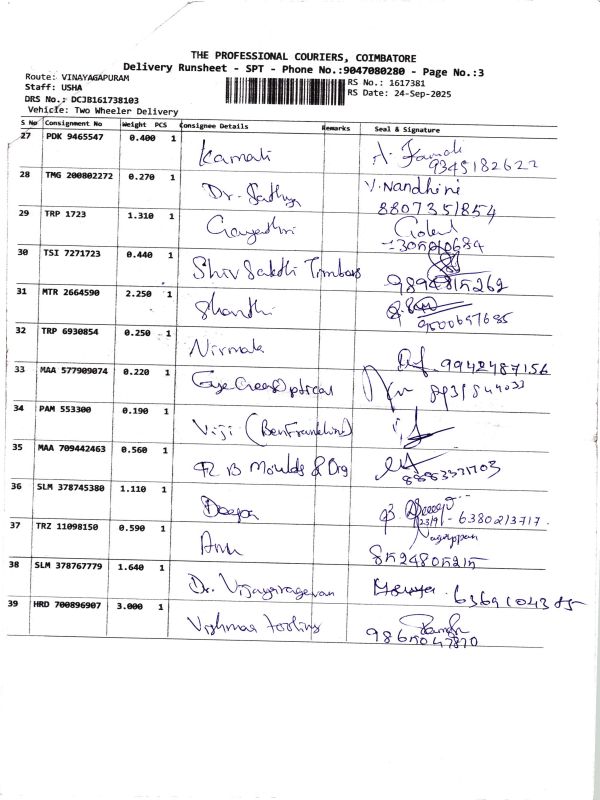 THE PROFESSIONAL COURIERS, COIMBATORE
Delivery Runsheet - SPT - Phone No.:9047080280 - Page No.:3
Route: VINAYAGAPURAM
RS No.: 1617381
Staff: USHA
RS Date: 24-Sep-2025
DRS No.: DCJB161738103
Vehicle: Two Wheeler Delivery
S No Consignment No Weight PCS Consignee Details Remarks Seal & Signature
27 PDK 9465547 0.400 1 Kamali A.
9345182622
28 TMG 200802272 0.270 1 Dr. Sathya V. Nandhini
8807351854
29 TRP 1723 1.310 1 Gayathri
30 TSI 7271723 0.440 1 Shiv Sakthi Timbars
9894815262
31 MTR 2664590 2.250 1 Shanthi
9500657685
32 TRP 6930854 0.250 1 Nirmala 9942487156
33 MAA 577909074 0.220 1 Optical
34 PAM 553300 0.190 1 Viji (BenFranklin)
35 MAA 709442463 0.560 1 Moulds & Eng
36 SLM 378745380 1.110 1 Deepa
23/9 - 6380213717.
37 TRZ 11098150 0.590 1 Nagappan
8524805215
38 SLM 378767779 1.640 1 Dr. Vijayaragavan
39 HRD 700896907 3.000 1 Vishmaa tooling
9865047870